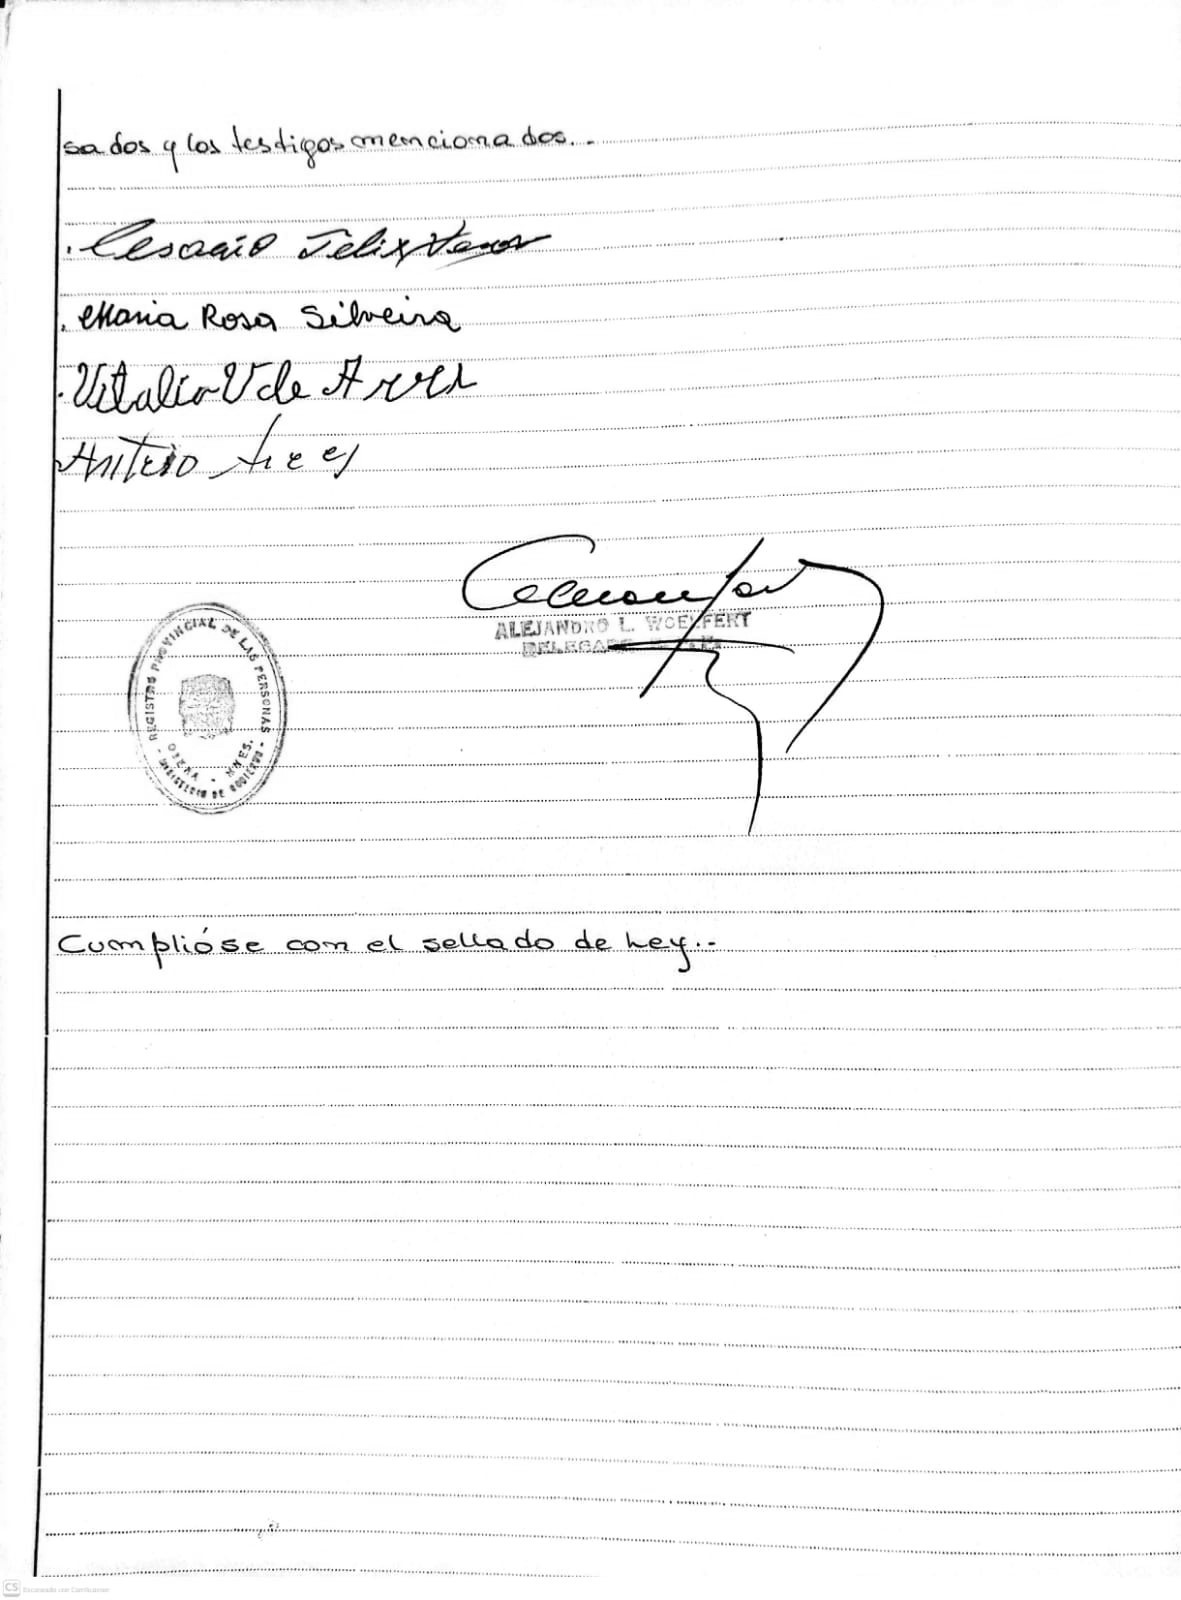 sados y los testigos mencionados..-
Cesario Felix
Maria Rosa Silveira
Vitalia V de
Antero
ALEJANDRO L. WOELFERT
DELEGADO
REGISTRO PROVINCIAL DE LAS PERSONAS
OBERA - MNES.
- MINISTERIO DE GOBIERNO -
Cumplióse con el sellado de Ley..-
CS Escaneado con CamScanner